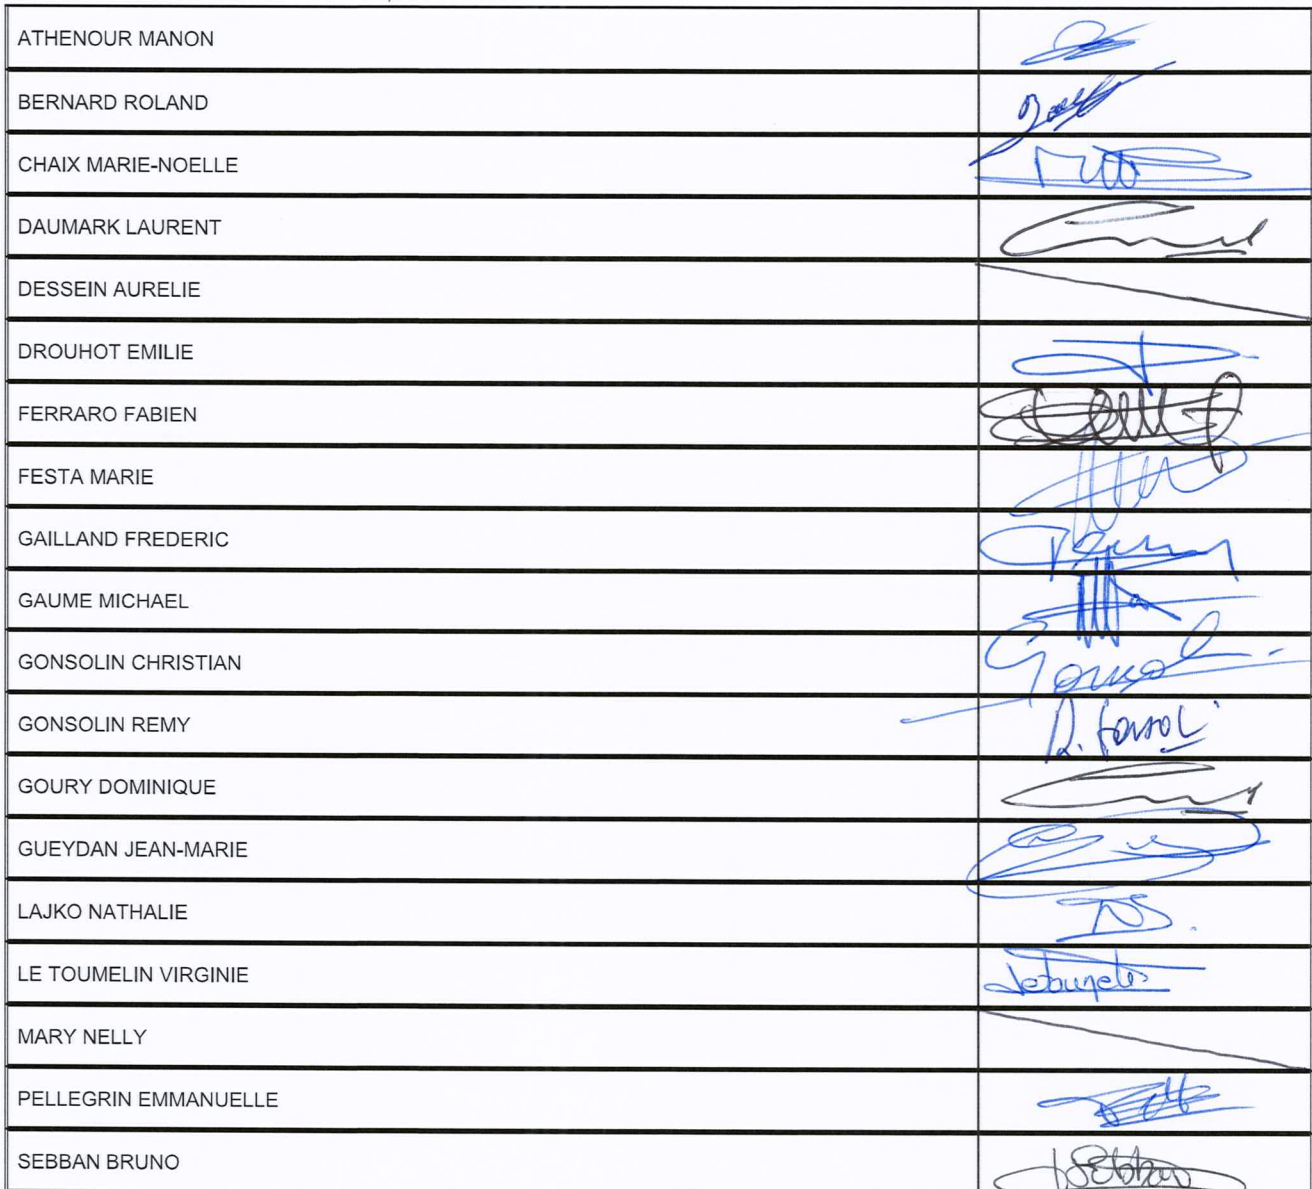 ATHENOUR MANON
BERNARD ROLAND
CHAIX MARIE-NOELLE
DAUMARK LAURENT
DESSEIN AURELIE
DROUHOT EMILIE
FERRARO FABIEN
FESTA MARIE
GAILLAND FREDERIC
GAUME MICHAEL
GONSOLIN CHRISTIAN
GONSOLIN REMY
GOURY DOMINIQUE
GUEYDAN JEAN-MARIE
LAJKO NATHALIE
LE TOUMELIN VIRGINIE
MARY NELLY
PELLEGRIN EMMANUELLE
SEBBAN BRUNO